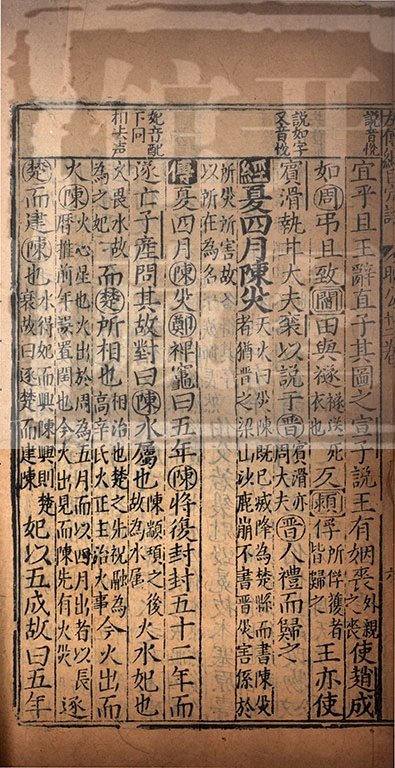 說音悅
宜乎且王辭直子其圖之宣子說王有姻喪外親之喪使趙成
如周弔且致閻田與襚襚送死衣也反潁俘所俘獲者皆歸之王亦使
說如字又音悅
賓滑執甘大夫襄以說于晉賓滑亦周大夫晉人禮而歸之
經夏四月陳災天火曰災陳既已滅降為楚縣而書陳災者猶晉之梁山沙鹿崩不書晉災害係於
所災所害故以所在為名
傳夏四月陳災鄭裨竈曰五年陳將復封封五十二年而
妃音配下同相去声
遂亡子產問其故對曰陳水屬也陳顓頊之後故為水屬火水妃也
火畏水故為之妃而楚所相也相治也楚之先祝融為高辛氏火正主治火事今火出而
火陳火心星也火出於周為五月而以四月出者以長曆推前年誤置閏也今火出見而陳先有火災逐
楚而建陳也水得妃而興陳興則楚衰故曰逐楚而建陳妃以五成故曰五年